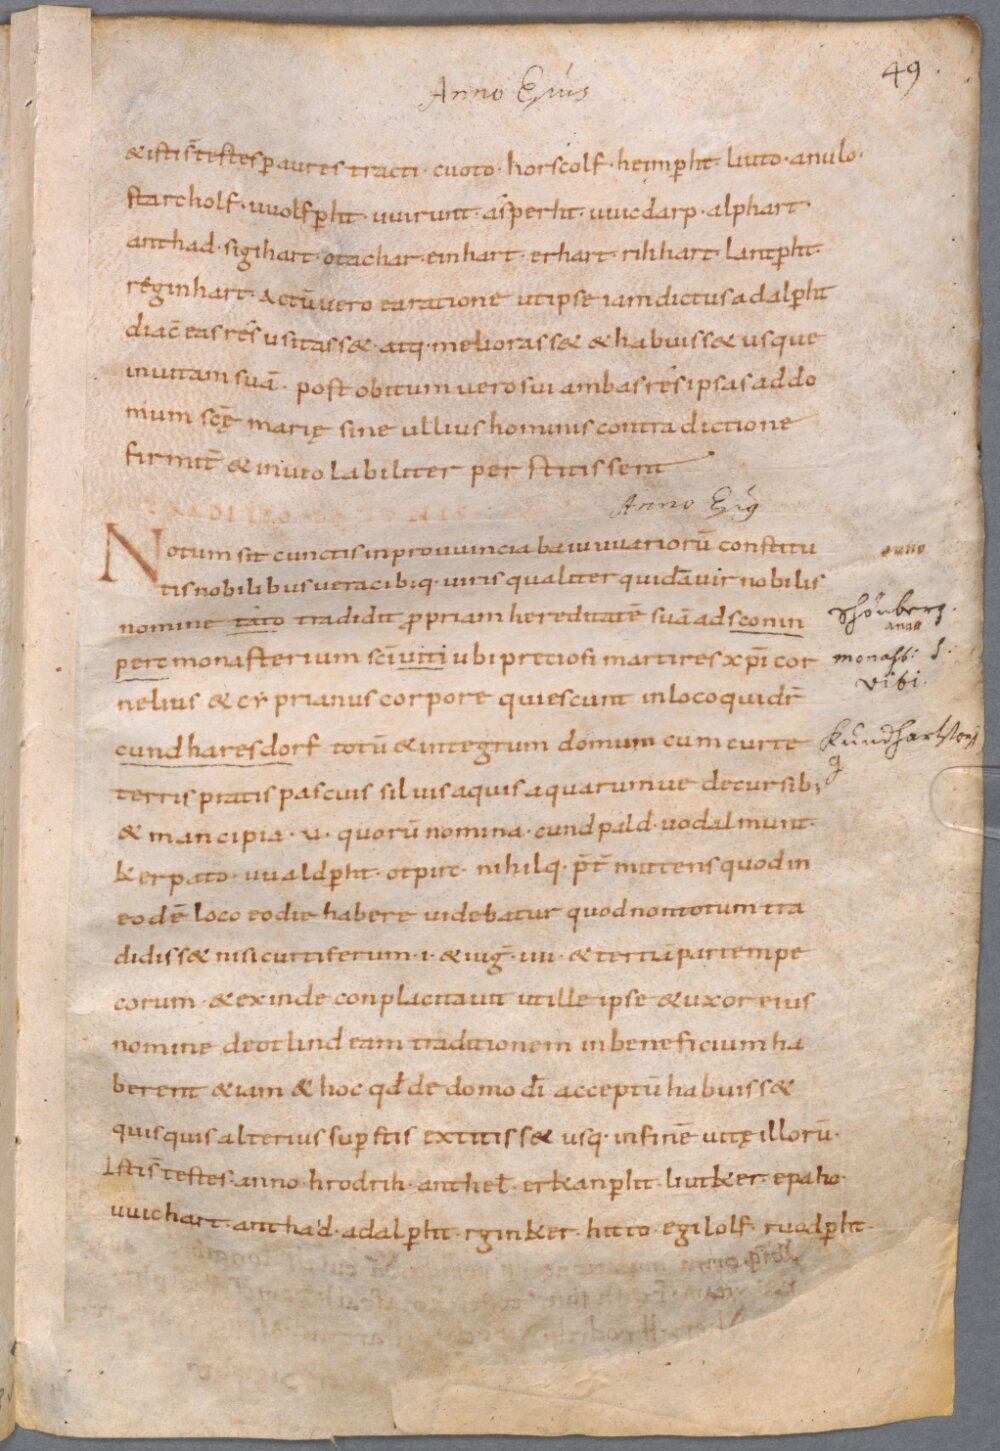 49
Anno Eius
& isti s̄ testes ꝑ aures tracti · cuoto · horscolf · heimꝑht · liuto · anulo ·
starcholf · uuolfꝑht · uuirunt · asperht · uuicdarp · alphart ·
anthad · sigihart · otachar · einhart · erhart · rihhart · lantꝑht ·
reginhart · Actū vero ea ratione ut ipse iam dictus adalꝑht
diac̄ eas res usitass& · atq· meliorass& & habuiss& usque
in uitam suā · post obitum vero sui ambas res ipsas ad do
mium scę̄ marię sine ullius hominis contradictione
firmit̄ & inuiolabiliter perstitissent
Anno Eius
Notum sit cunctis in prouuincia baiuuuariorū constitu
tis nobilibus ueracib;q· uiris qualiter quidā uir nobilis
nomine tato tradidit ꝓpriam hereditatē suā ad sconin
perc monasterium sc̄i uiti ubi preciosi martires xp̄i cor
nelius & cyprianus corpore quiescunt in loco qui dr̄
cundharesdorf totū & integrum domum cum curte
terris pratis pascuis siluis aquis aquarumue decursib;
& mancipia · u · quorū nomina · cundpald · uodalmunt ·
kerpato · uualdꝑht · otpirc · nihilq· p̄t̄mittens quod in
eodē loco eodie habere uidebatur quod non totum tra
didiss& nisi curtiferum · i · & iuḡ · iiii · & tertiā partem pe
corum · & exinde conplacitauit ut ille ipse & uxor eius
nomine deotlind eam traditionem in beneficium ha
berent & iam & hoc qđ de domo dī acceptū habuiss&
quisquis alterius suꝑstis extitiss& usq· in finē uitę illorū ·
Isti s̄ testes · anno · hrodrih · anthel · erkanꝑht · liutker · epaho ·
uuichart · anthad · adalꝑht · rginker · hitto · egilolf · ruodꝑht ·
anno
Schönberg
anaa
monast: S.
Viti